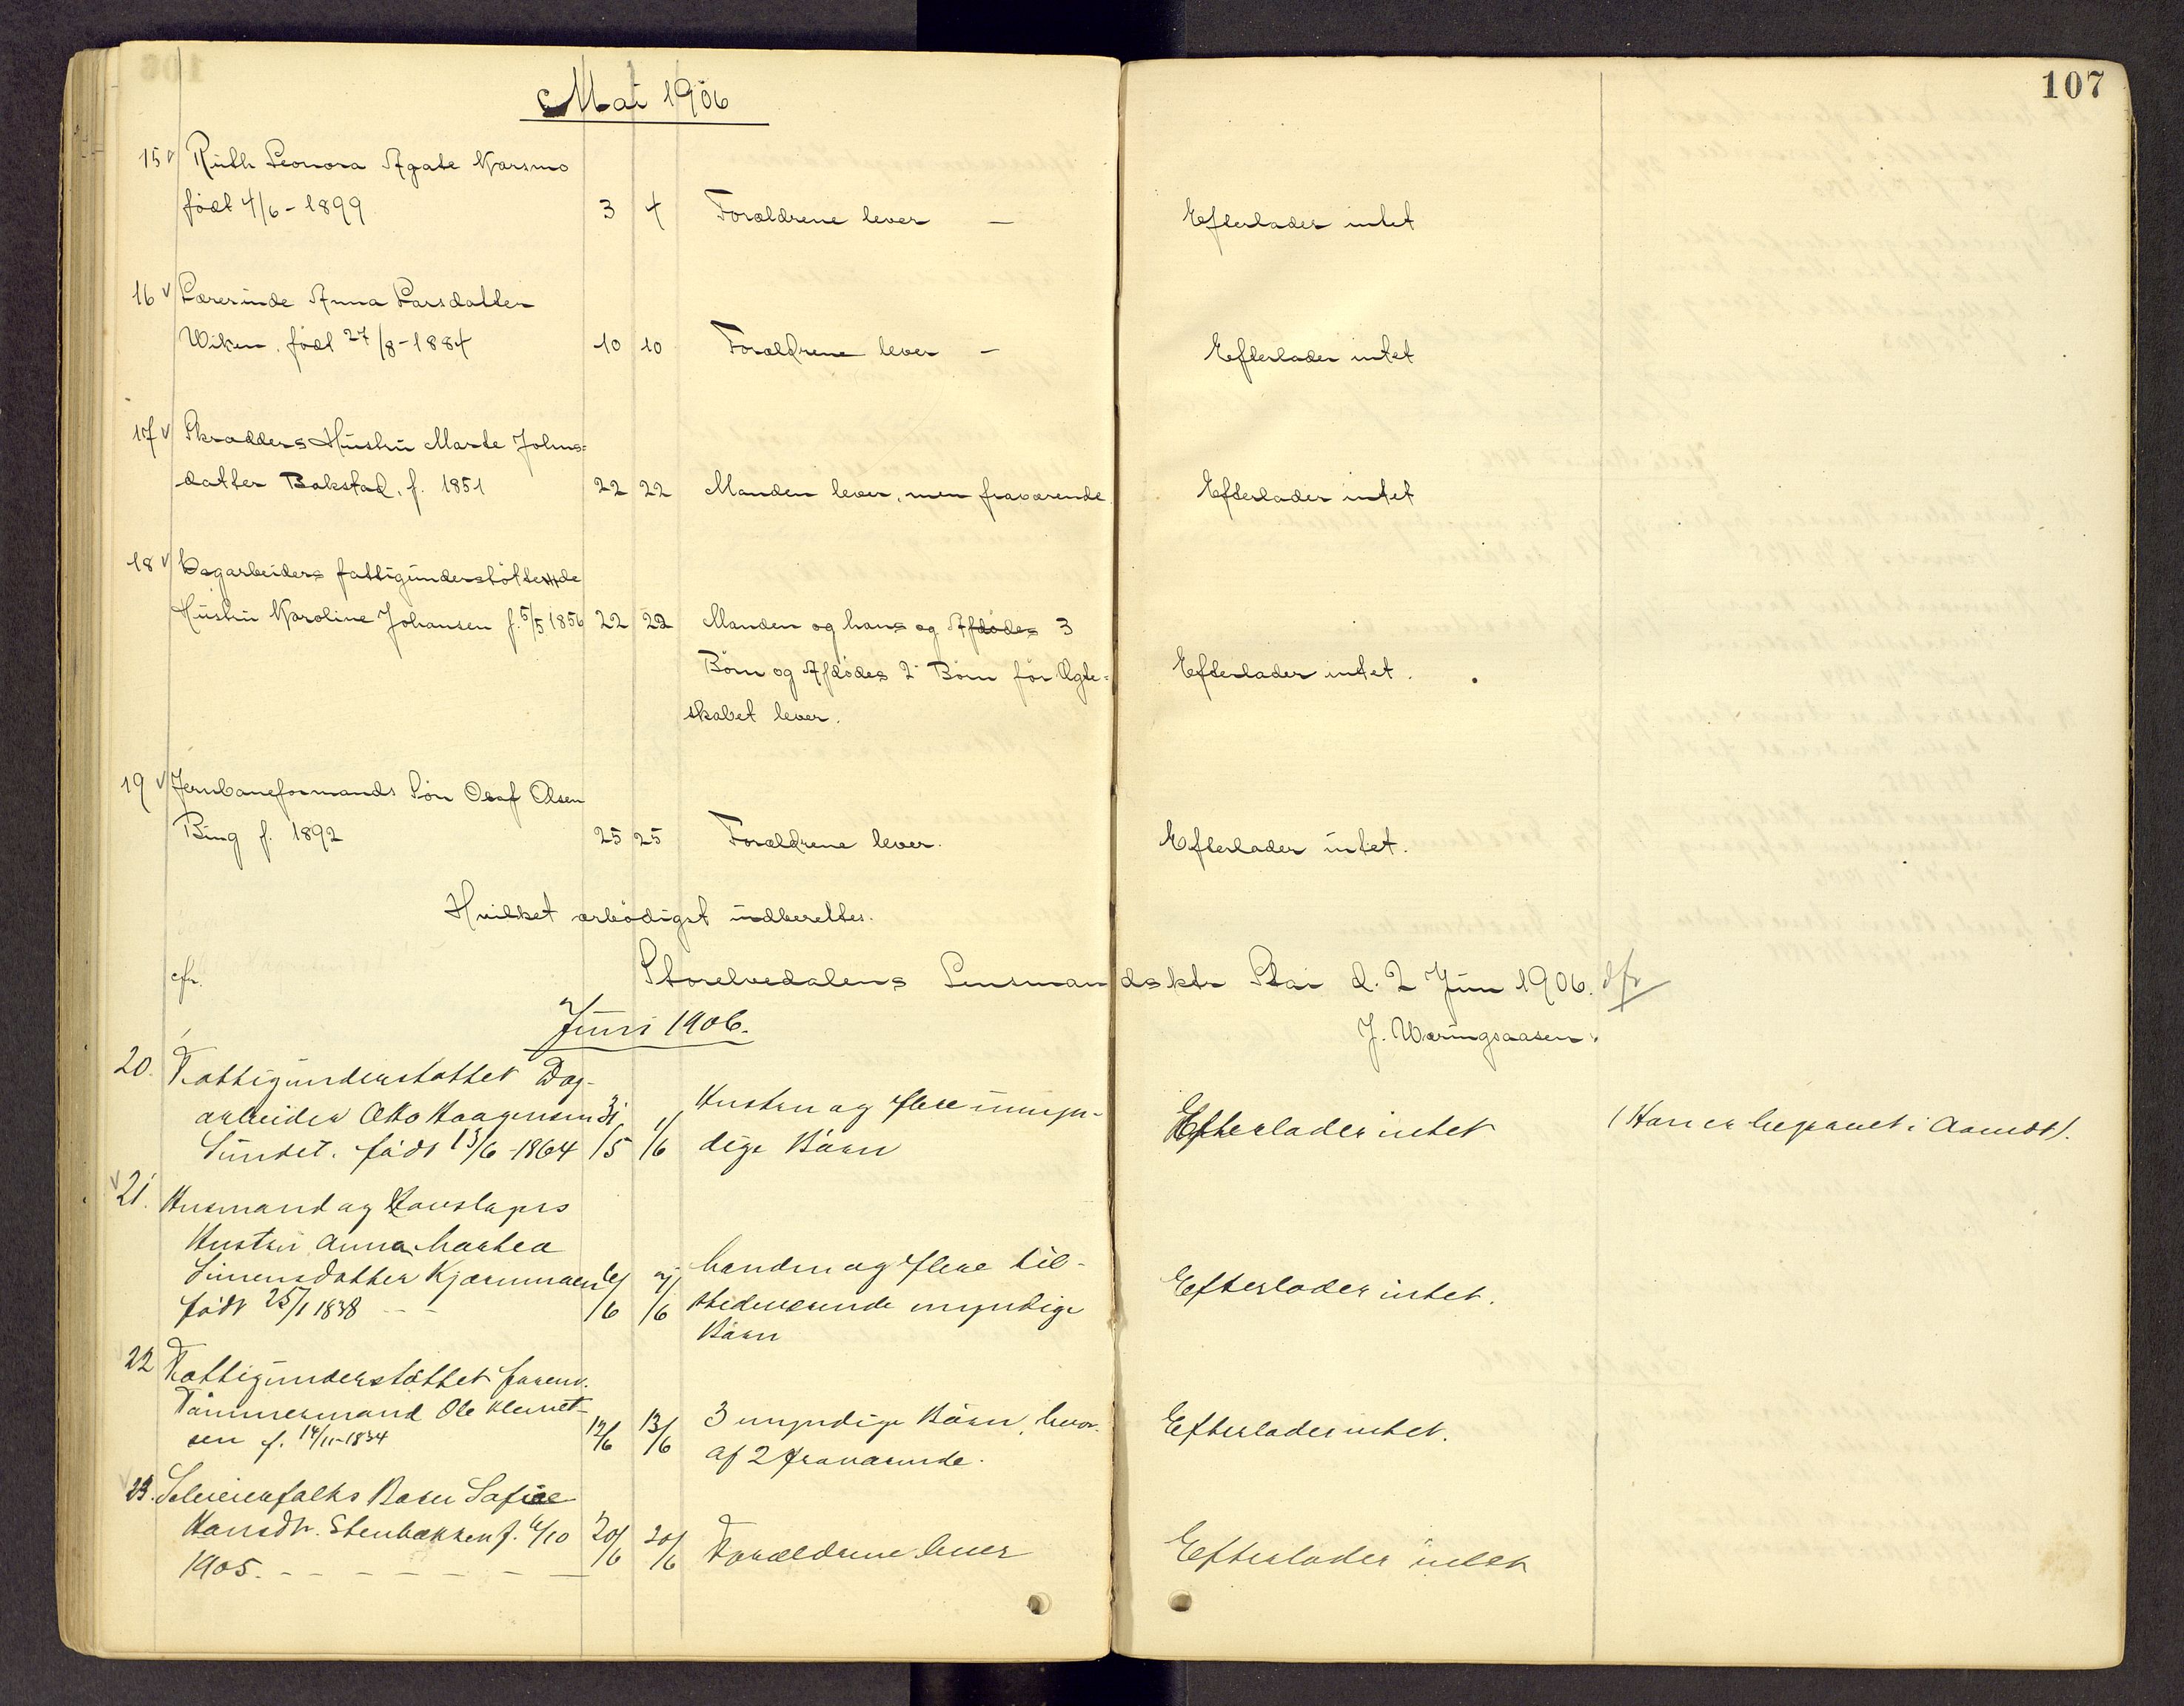 107
Mai 1906
15 Ruth Leonora Agate Karsmo
født 4/6-1899 3 4 Forældrene lever — Efterlader intet
16 Lærerinde Anna Larsdatter
Wiken, født 27/8-1884 10 10 Forældrene lever — Efterlader intet
17 Skrædders Hustru Marte Johns=
datter Bakstad, f. 1851 22 22 Manden lever, men fraværende. Efterlader intet
18 Dagarbeiders fattigunderstøttende
Hustru Karoline Johansen f. 5/5 1856 22 22 Manden og hans og Afdødes 3
Børn og Afdødes 2 Børn før Ægte= Efterlader intet.
skabet lever.
19 Jernbaneformands Søn Olaf Olsen
Bing f. 1892 25 25 Forældrene lever. Efterlader intet.
Hvilket ærbødigst indberettes.
cfr. Storelvedalens Lensmandsktr Stai d. 2 Juni 1906. dfr
J. Wæringsaasen
Juni 1906.
20. Fattigunderstøttet Dag-
arbeider Otto Haagensen 31/5 1/6 Hustru og flere umyn-
Sundet. født 13/6-1864 dige Børn Efterlader intet (Han er begravet i Aamodt).
21. Husmand og
Hustru Anna Martea
Simensdatter Kjærnmoen 6/6 7/6 Manden og flere til-
født 25/1 1838 - - stedeværende myndige Efterlader intet.
Børn
22 Fattigunderstøttet forenv.
Tømmermand Ole Klemet-
sen f. 14/11-1834 12/6 13/6 3 myndige Børn, hvor- Efterlader intet.
af 2 fraværende.
23. Selveierfolks Barn Sofie
Hansdtr. Stenbækken f. 6/10 20/6 20/6 Forældrene lever Efterlader intet
1905. - - - - - - -